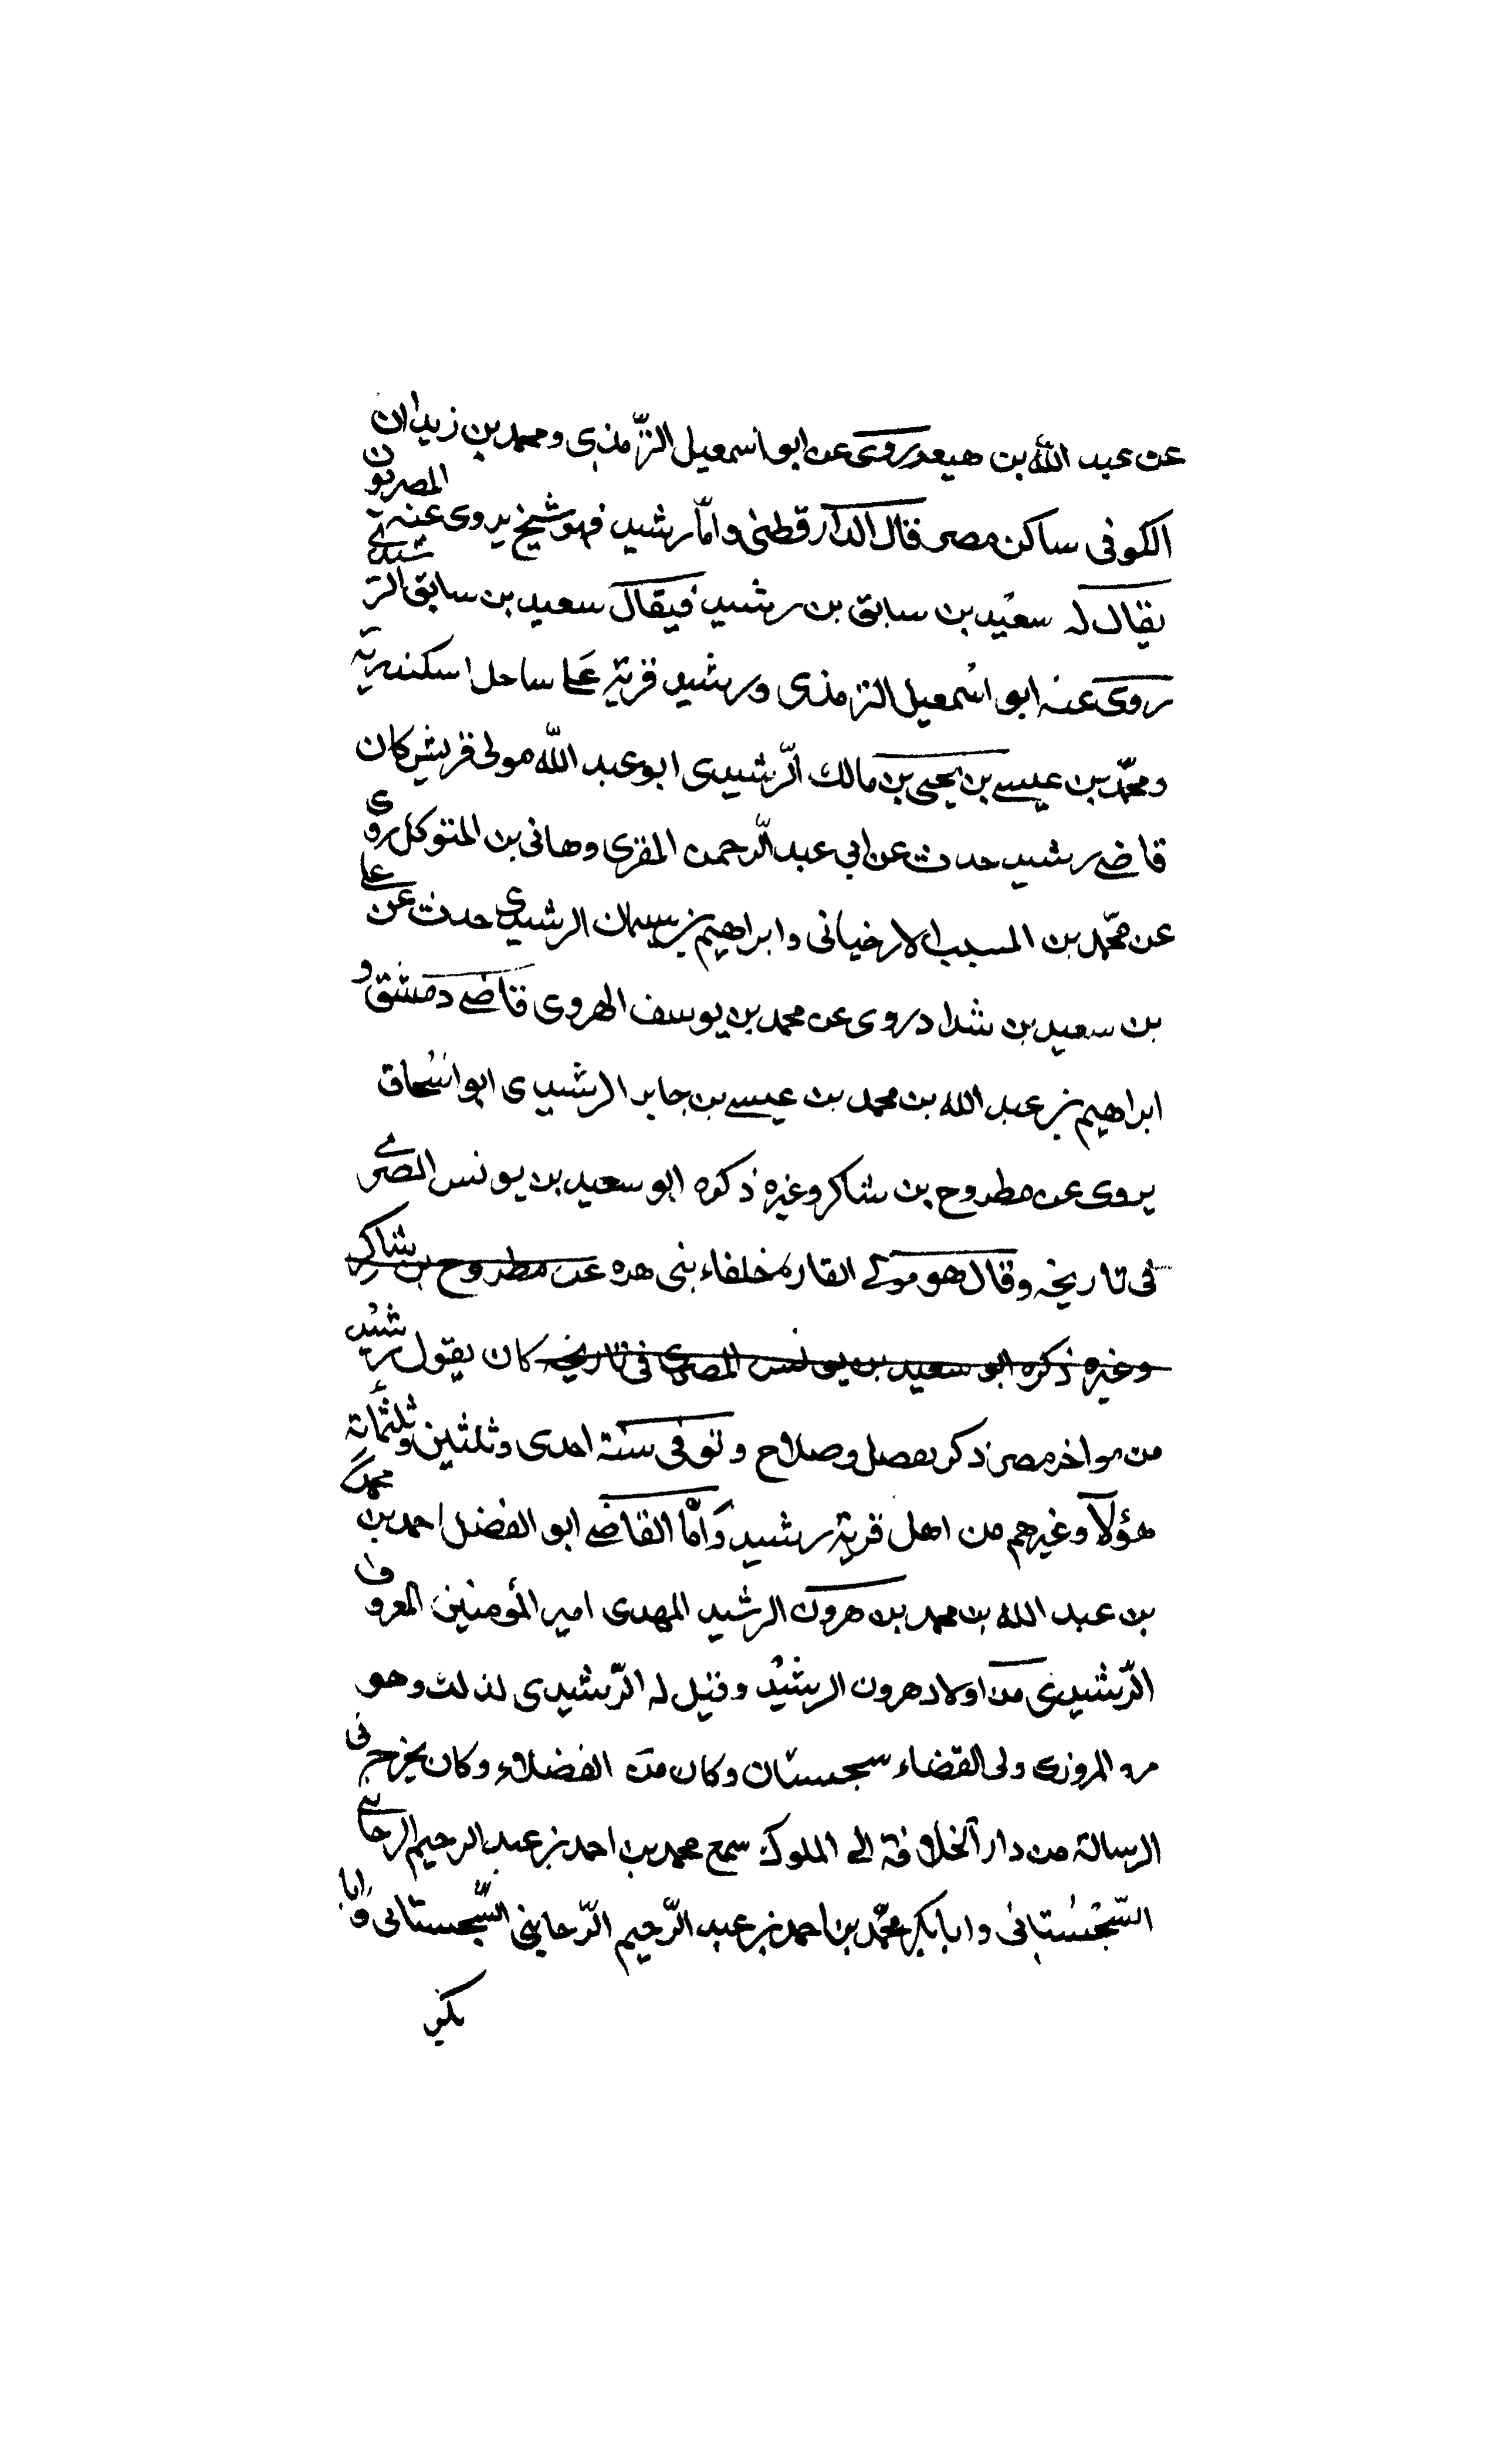 عن عبد الله بن هيعه روى عن ابو اسمعيل الترمذى ومحمد بن زيدان
الكوفى ساكن مصر قال الدارقطنى واما رشيد فهو شيخ يروى عنه المصريون
يقال له سعيد بن سابق بن رشيد فيقال سعيد بن سابق الرشيدى
روى عنه ابو اسمعيل الترمذى ورشيد قرية على ساحل اسكندرية
ومحمد بن عيسى بن يحيى بن مالك الرشيدى ابو عبد الله مولى قريش كان
قاضى رشيد حدث عن ابى عبد الرحمن المقرى وهانى بن المتوكل روى
عن محمد بن المسيب الارخيانى وابراهيم بن سليمان الرشيدى حدث عن على
بن سعيد بن شداد روى عن محمد بن يوسف الهروى قاضى دمشق و
ابراهيم بن عبد الله بن محمد بن عيسى بن جابر الرشيدى ابو اسحاق
يروى عن مطروح بن شاكر وغيره ذكره ابو سعيد بن يونس المصرى
فى تاريخه وقال هو مولى القارة خلفاء بنى هره عن مطروح بن شاكر
وغيره ذكره ابو سعيد بن يونس المصرى فى تاريخه كان يقول رشيد
من مواخر مصر ذكر بفضل وصلاح وتوفى سنة احدى وثلثين وثلثمائة
هؤلاء وغيرهم من اهل قرية رشيد واما القاضى ابو الفضل احمد بن محمد
بن عبد الله بن محمد بن هرون الرشيد المهدى امير المؤمنين المعروف
الرشيدى من اولاد هرون الرشيد وقيل له الرشيدى لذلك وهو
مرو المروزى ولى القضاء سجستان وكان من الفضلاء وكان يخرج فى
الرسالة من دار الخلافة الى الملوك سمع محمد بن احمد بن عبد الرحيم الرحانى
السجستانى وابا بكر محمد بن احمد بن عبد الرحيم الرحاينى السجستانى وابا
بكر